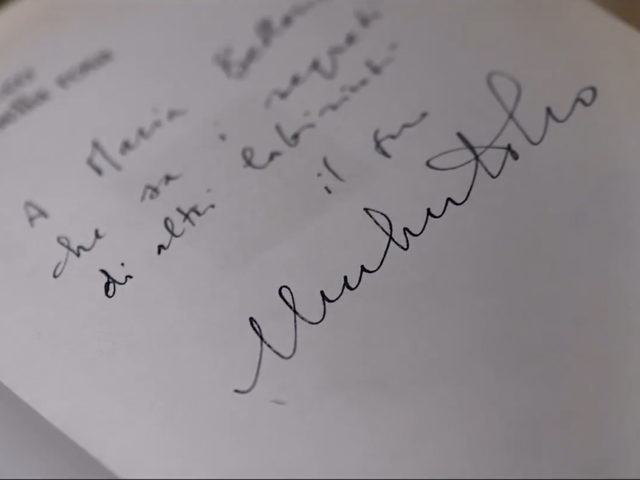 A Maria
che sa i segreti
di altri labirinti
il suo
Umberto Eco